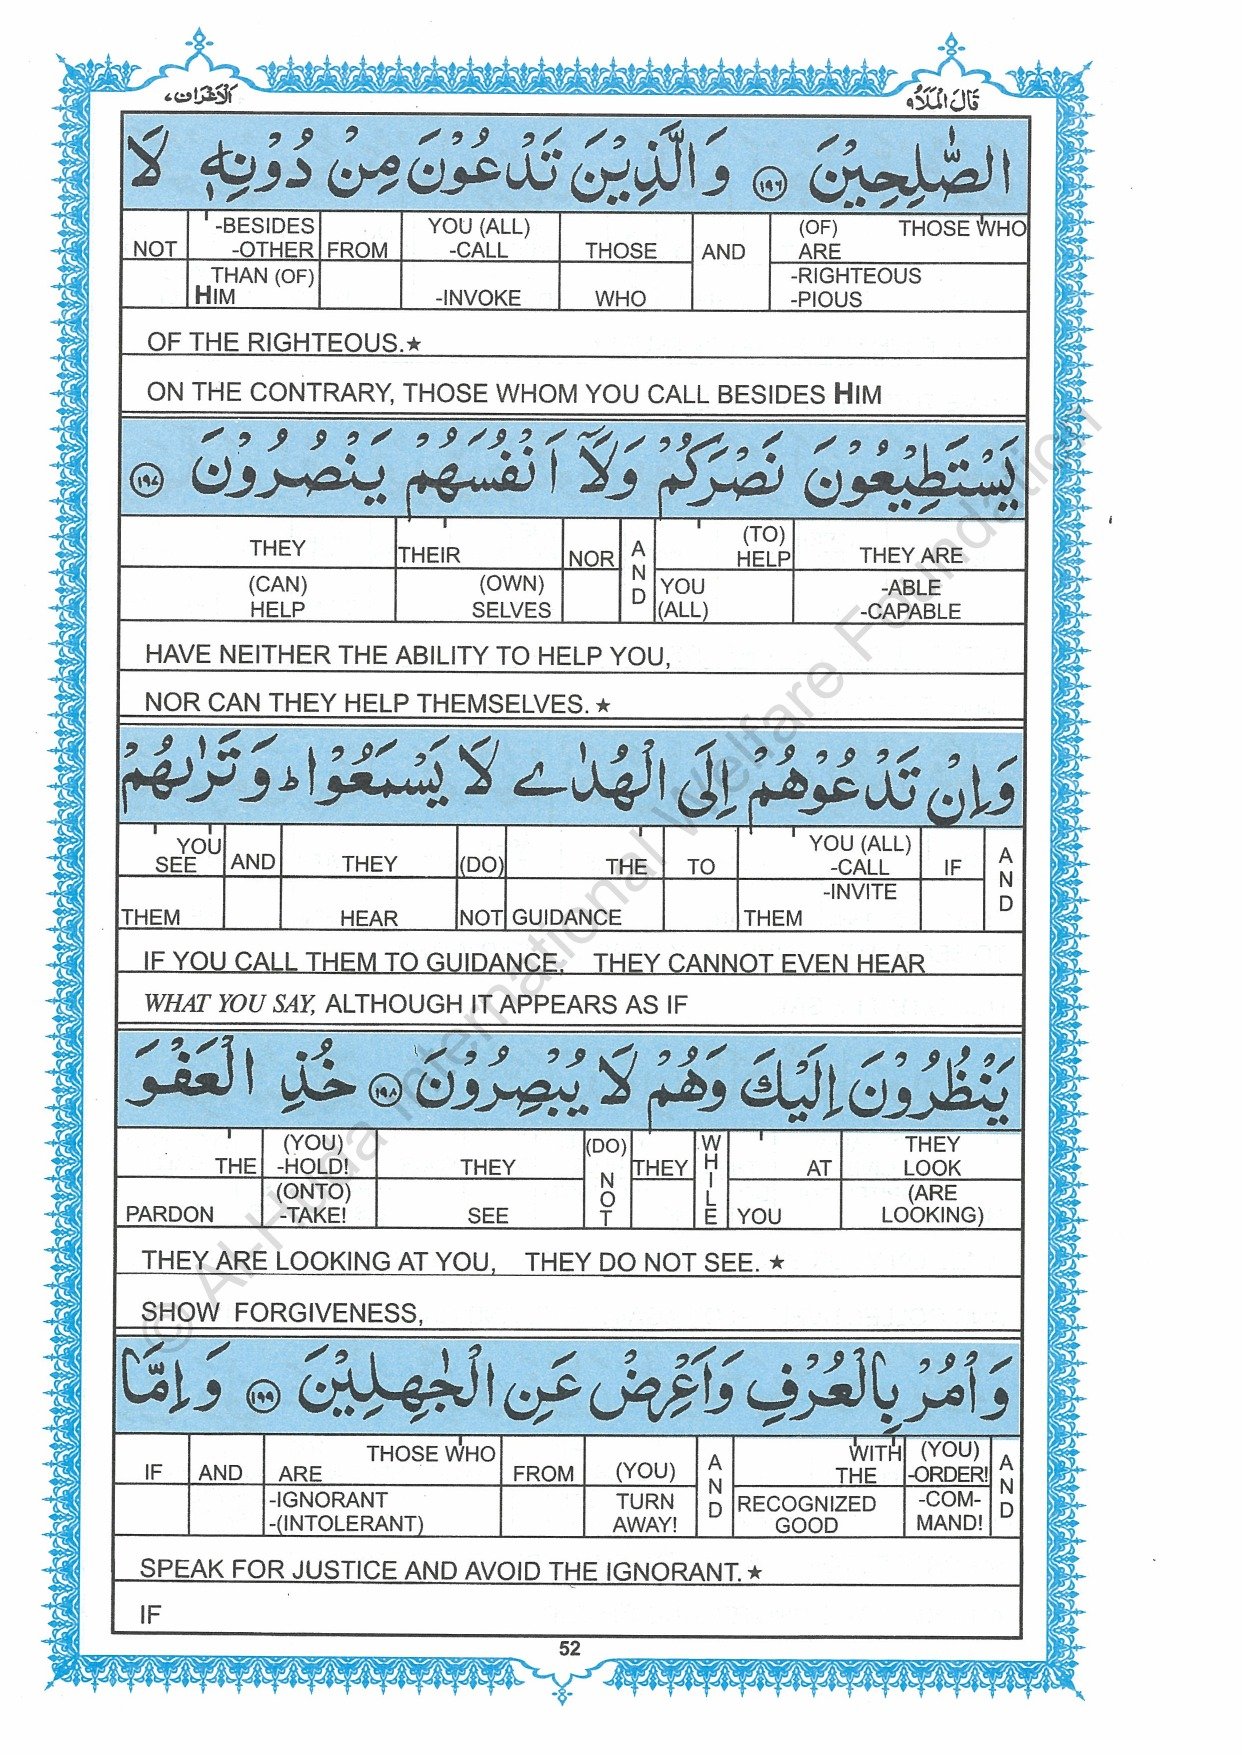 الاعراف ٧
قال الملا ٩
الصّٰلِحِيْنَ ١٩٦ وَالَّذِيْنَ تَدْعُوْنَ مِنْ دُوْنِهٖ لَا
NOT | -BESIDES -OTHER THAN (OF) HIM | FROM | YOU (ALL) -CALL -INVOKE | THOSE WHO | AND | (OF) THOSE WHO ARE -RIGHTEOUS -PIOUS
OF THE RIGHTEOUS.★
ON THE CONTRARY, THOSE WHOM YOU CALL BESIDES HIM
يَسْتَطِيْعُوْنَ نَصْرَكُمْ وَلَآ اَنْفُسَهُمْ يَنْصُرُوْنَ ١٩٧
THEY (CAN) HELP | THEIR (OWN) SELVES | NOR | AND | (TO) HELP YOU (ALL) | THEY ARE -ABLE -CAPABLE
HAVE NEITHER THE ABILITY TO HELP YOU,
NOR CAN THEY HELP THEMSELVES.★
وَاِنْ تَدْعُوْهُمْ اِلَى الْهُدٰى لَا يَسْمَعُوْا ط وَتَرٰىهُمْ
YOU SEE THEM | AND | THEY HEAR | (DO) NOT | THE GUIDANCE | TO | YOU (ALL) -CALL -INVITE THEM | IF | AND
IF YOU CALL THEM TO GUIDANCE, THEY CANNOT EVEN HEAR
WHAT YOU SAY, ALTHOUGH IT APPEARS AS IF
يَنْظُرُوْنَ اِلَيْكَ وَهُمْ لَا يُبْصِرُوْنَ ١٩٨ خُذِ الْعَفْوَ
THE PARDON | (YOU) -HOLD! (ONTO) -TAKE! | THEY SEE | (DO) NOT | THEY | WHILE | AT YOU | THEY LOOK (ARE LOOKING)
THEY ARE LOOKING AT YOU, THEY DO NOT SEE. ★
SHOW FORGIVENESS,
وَاْمُرْ بِالْعُرْفِ وَاَعْرِضْ عَنِ الْجٰهِلِيْنَ ١٩٩ وَاِمَّا
IF | AND | THOSE WHO ARE -IGNORANT -(INTOLERANT) | FROM | (YOU) TURN AWAY! | AND | WITH THE RECOGNIZED GOOD | (YOU) -ORDER! -COM-MAND! | AND
SPEAK FOR JUSTICE AND AVOID THE IGNORANT.★
IF
52
© Al-Huda International Welfare Foundation